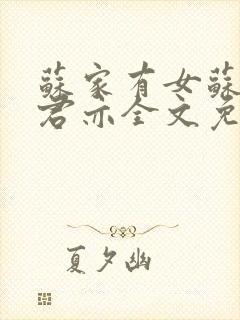 蘇家有女蘇
君亦全文免
夏夕幽